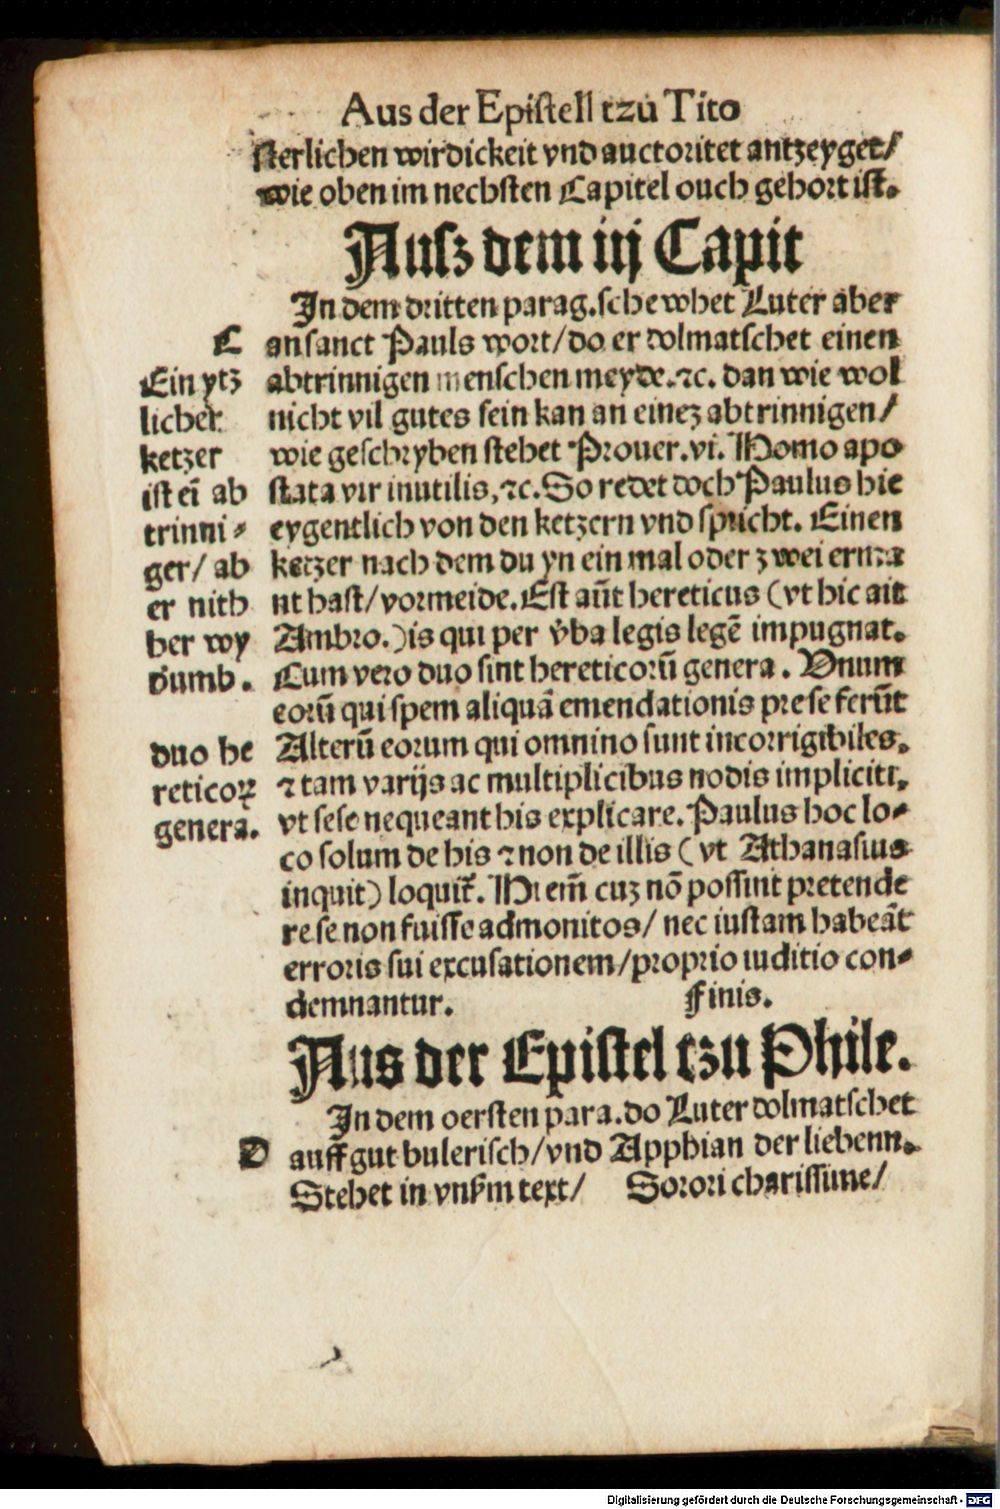 Aus der Epistell tzu Tito
sterlichen wirdickeit vnd auctoritet antzeyget/
wie oben im nechsten Capitel ouch gehort ist.
Ausz dem iij Capit
In dem dritten parag. schewhet Luter aber
C
an sanct Pauls wort/ do er dolmatschet einen
abtrinnigen menschen meyde. ⁊c. dan wie wol
nicht vil gutes sein kan an einez abtrinnigen/
wie geschryben stehet Prouer. vi. Homo apo
stata vir inutilis, ⁊c. So redet doch Paulus hie
eygentlich von den ketzern vnd spricht. Einen
ketzer nach dem du yn ein mal oder zwei erma
nt hast/ vormeide. Est aūt hereticus (vt hic ait
Ambro.) is qui per v̄ba legis legē impugnat.
Cum vero duo sint hereticorū genera. Vnum
eorū qui spem aliquā emendationis pre se ferūt
Alterū eorum qui omnino sunt incorrigibiles.
⁊ tam varijs ac multiplicibus nodis impliciti,
vt sese nequeant his explicare. Paulus hoc lo-
co solum de his ⁊ non de illis (vt Athanasius
inquit) loquit̄. Hi em̄ cuz nō possint pretende
re se non fuisse admonitos/ nec iustam habeāt
erroris sui excusationem/ proprio iuditio con-
demnantur. Finis.
Ein ytz
licher
ketzer
ist eī ab
trinni-
ger/ ab
er nith
her wy
dumb.
duo he
reticoꝝ
genera.
Aus der Epistel tzu Phile.
In dem oersten para. do Luter dolmatschet
D
auff gut bulerisch/ vnd Apphian der liebenn.
Stehet in vnserm text/ Sorori charissime/
Digitalisierung gefördert durch die Deutsche Forschungsgemeinschaft - DFG